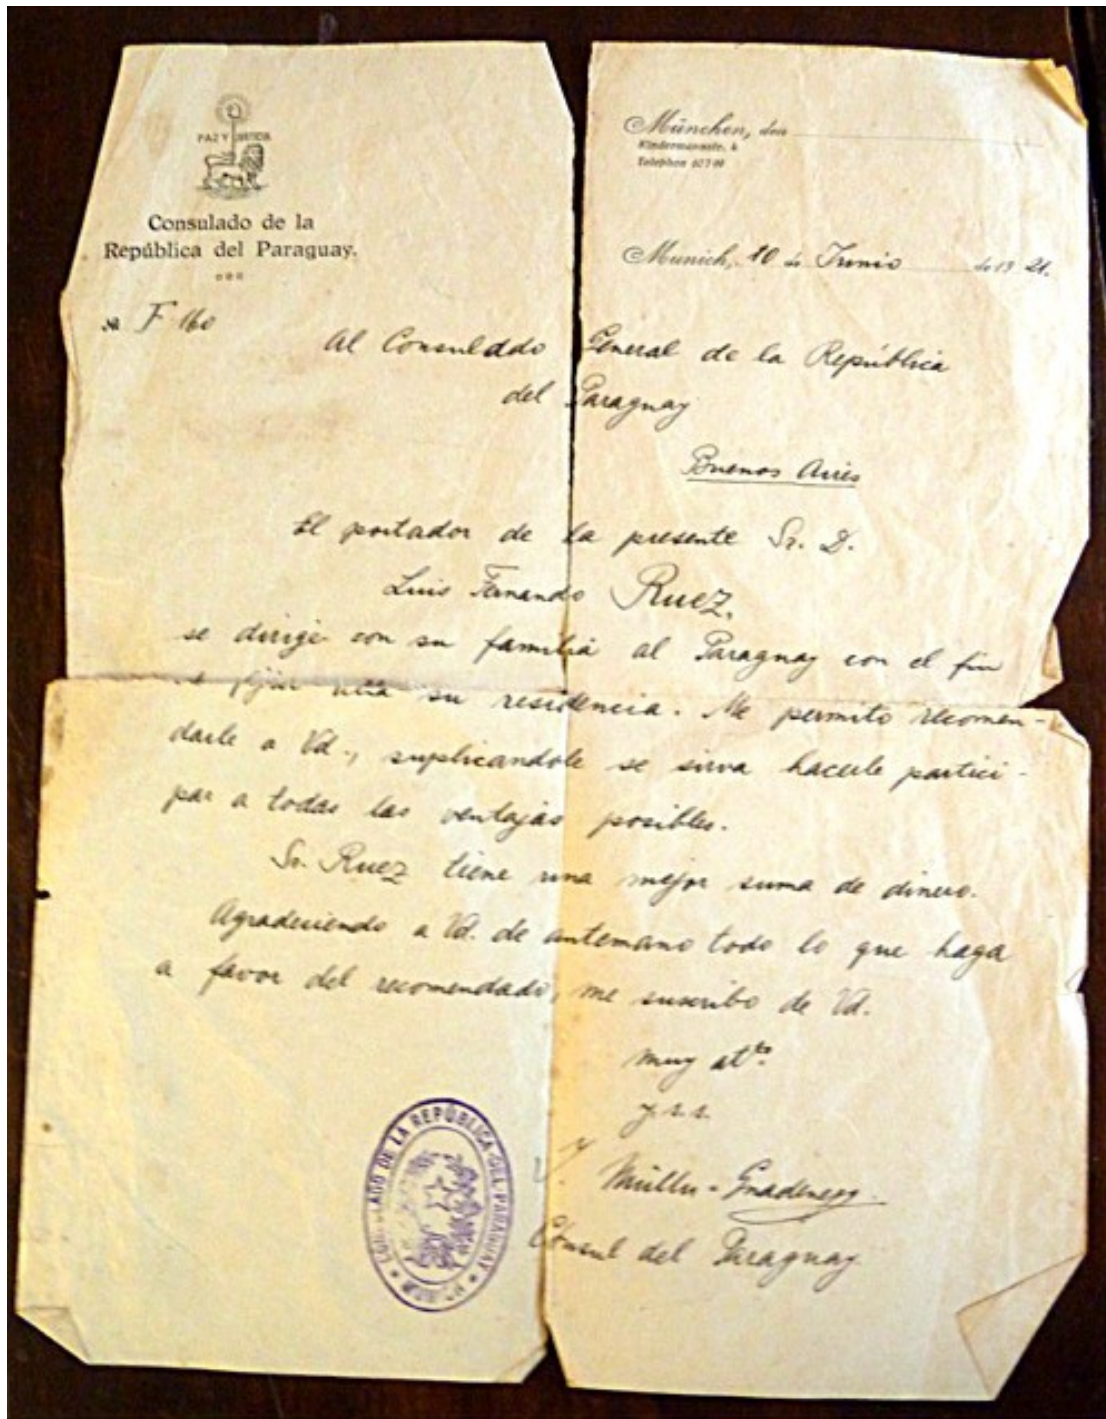 PAZ Y JUSTICIA
Consulado de la
República del Paraguay.
München, den
Kindermannstr. 4
Telephon
Munich, 10 de Junio de 19 21.
№ F 160
Al Consulddo General de la República
del Paraguay
Buenos Aires
El portador de la presente Sr. D.
Luis Fernando Ruez,
se dirige con su familia al Paraguay con el fin
fijar su residencia. Me permito recomen-
darle a Vd., suplicandole se sirva hacerle partici-
par a todas las ventajas posibles.
Sr. Ruez tiene una mejor suma de dinero.
Agradeciendo a Vd. de antemano todo lo que haga
a favor del recomendado, me suscribo de Vd.
muy atto.
y s. s.
Müller-Gnadenegg.
Consul del Paraguay
CONSULADO DE LA REPÚBLICA DEL PARAGUAY